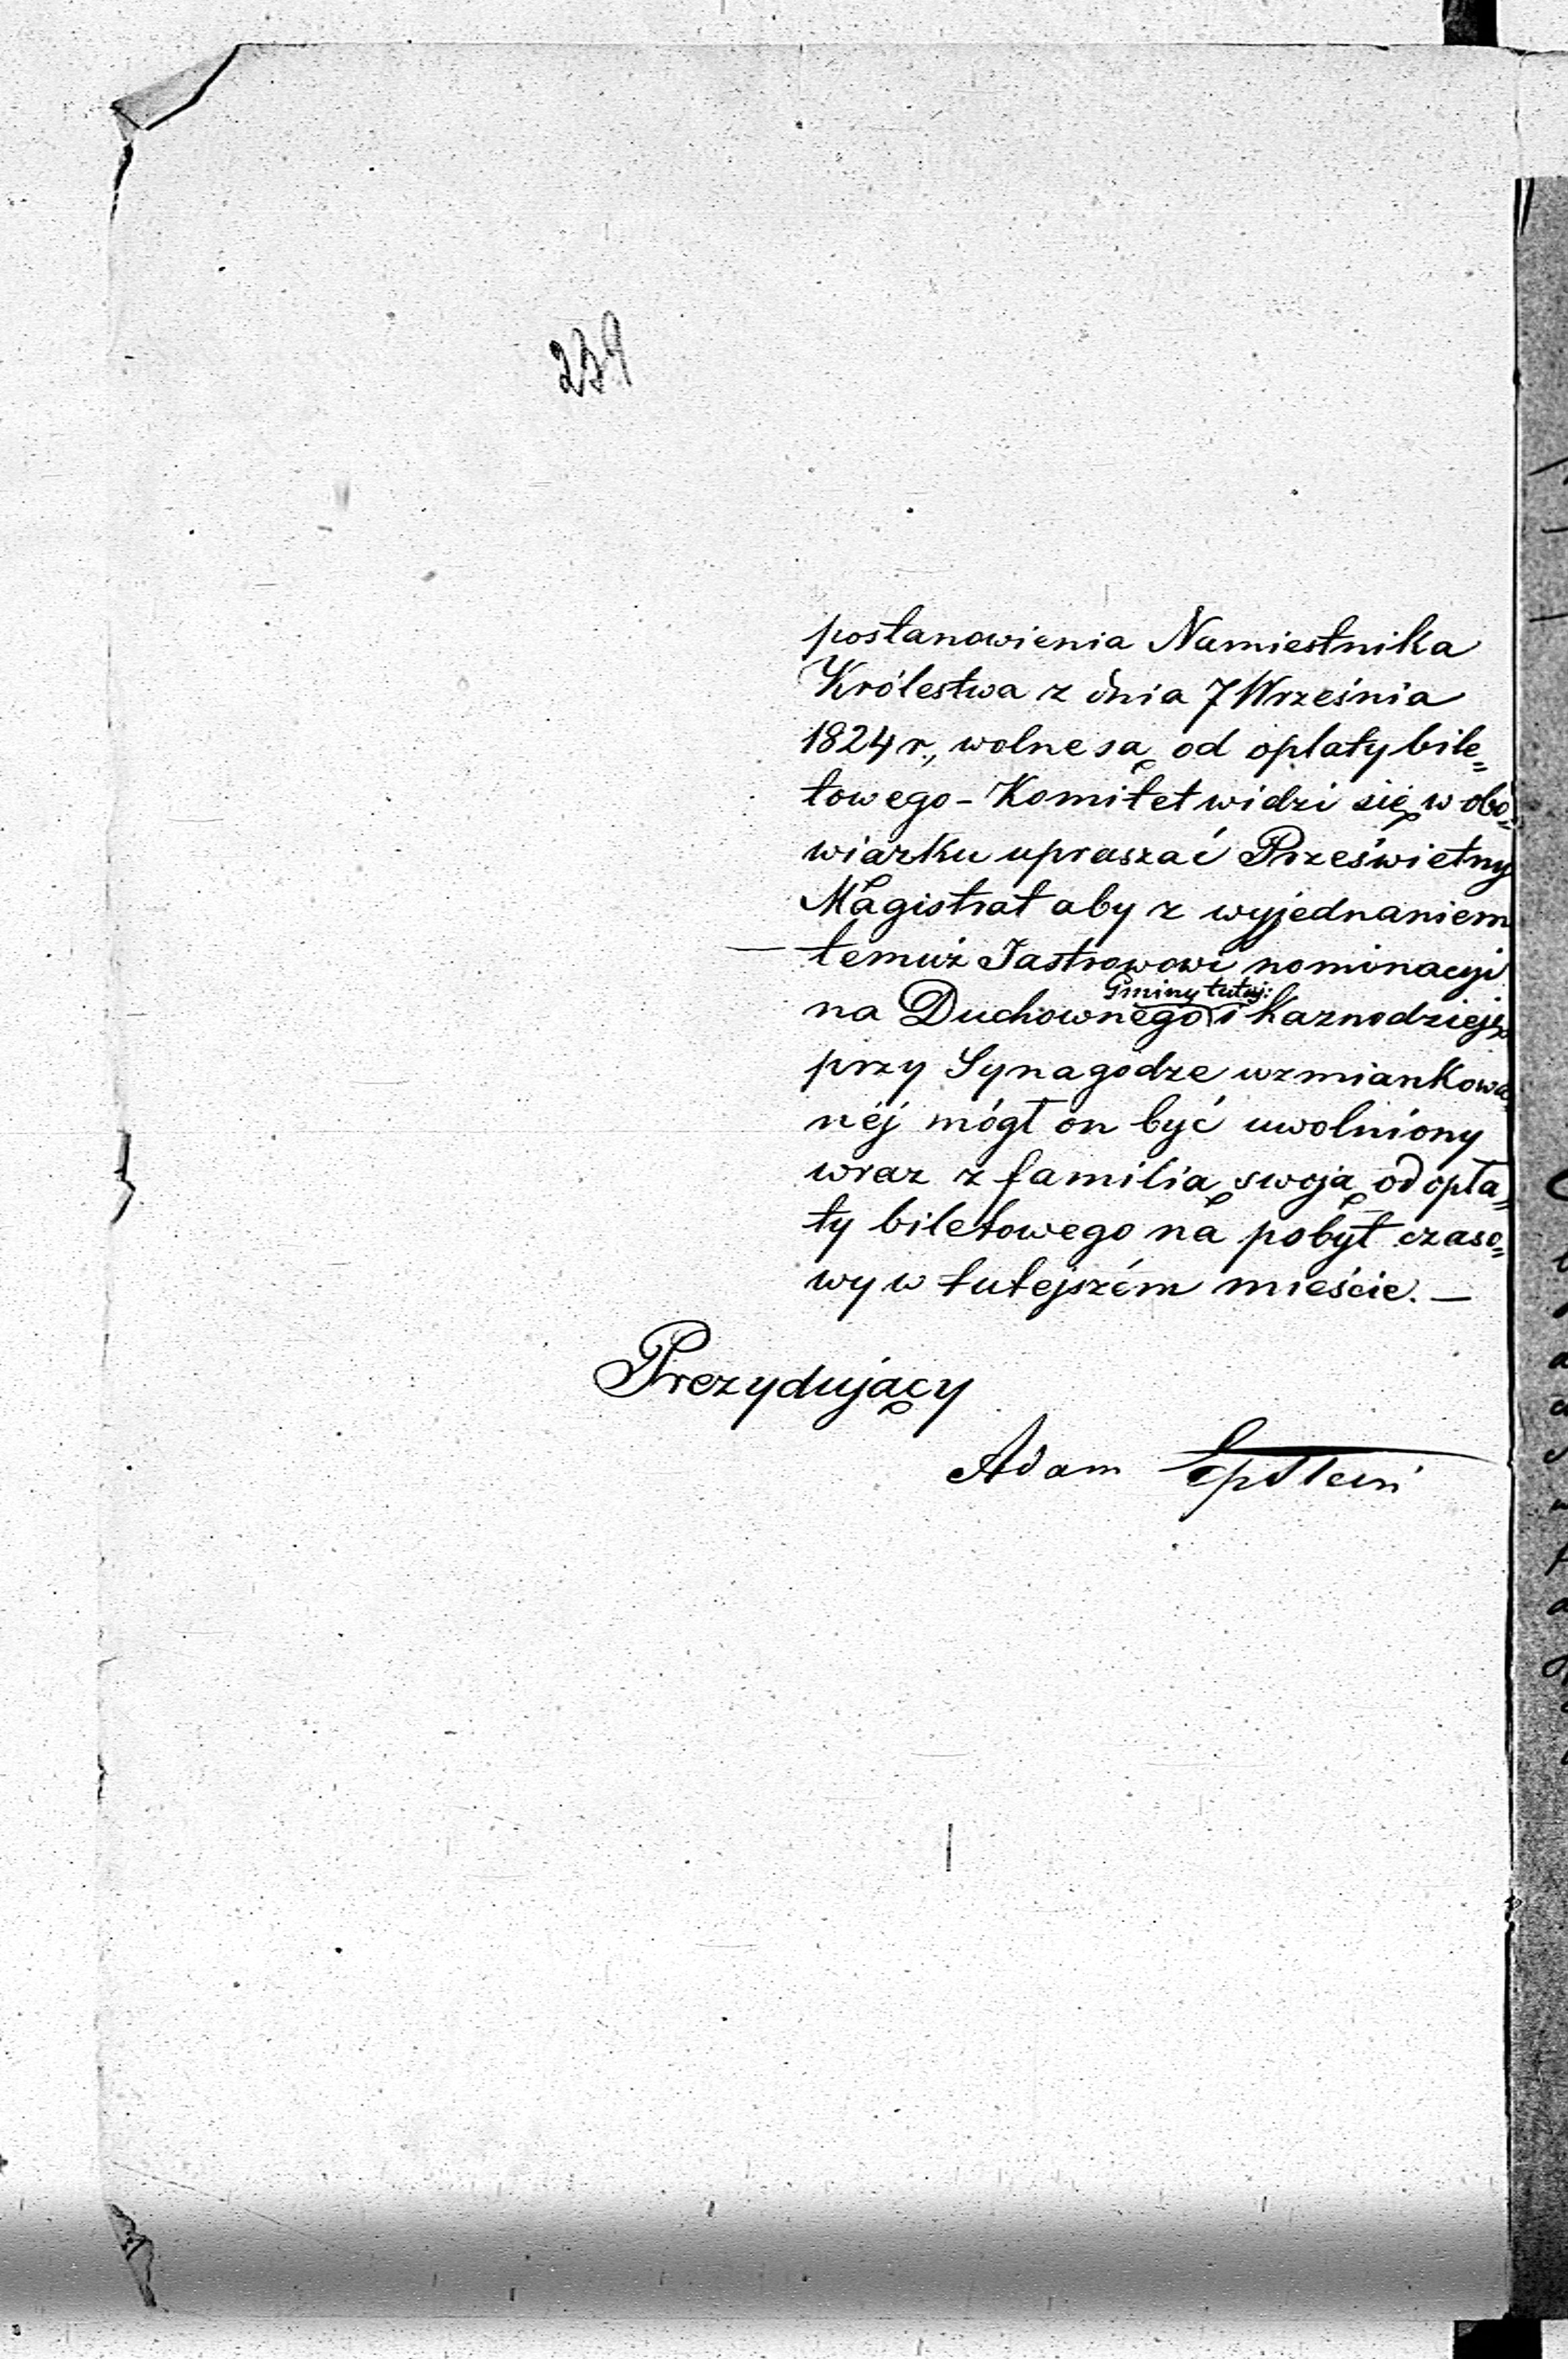 239
postanowienia Namiestnika
Królestwa z dnia 7 Września
1824 r., wolne są od opłaty bile=
towego - Komitet widzi się w obo=
wiązku upraszać Prześwietny
Magistrat aby z wyjednaniem
temuż Jastrowowi nominacyi
Gminy tutej:
na Duchownego i Kaznodzieję
przy Synagodze wzmiankowa=
néj mógł on być uwolniony
wraz z familią swoją od opła=
ty biletowego na pobyt czaso=
wy w tutejszém mieście. —
Prezydujący
Adam Epstein